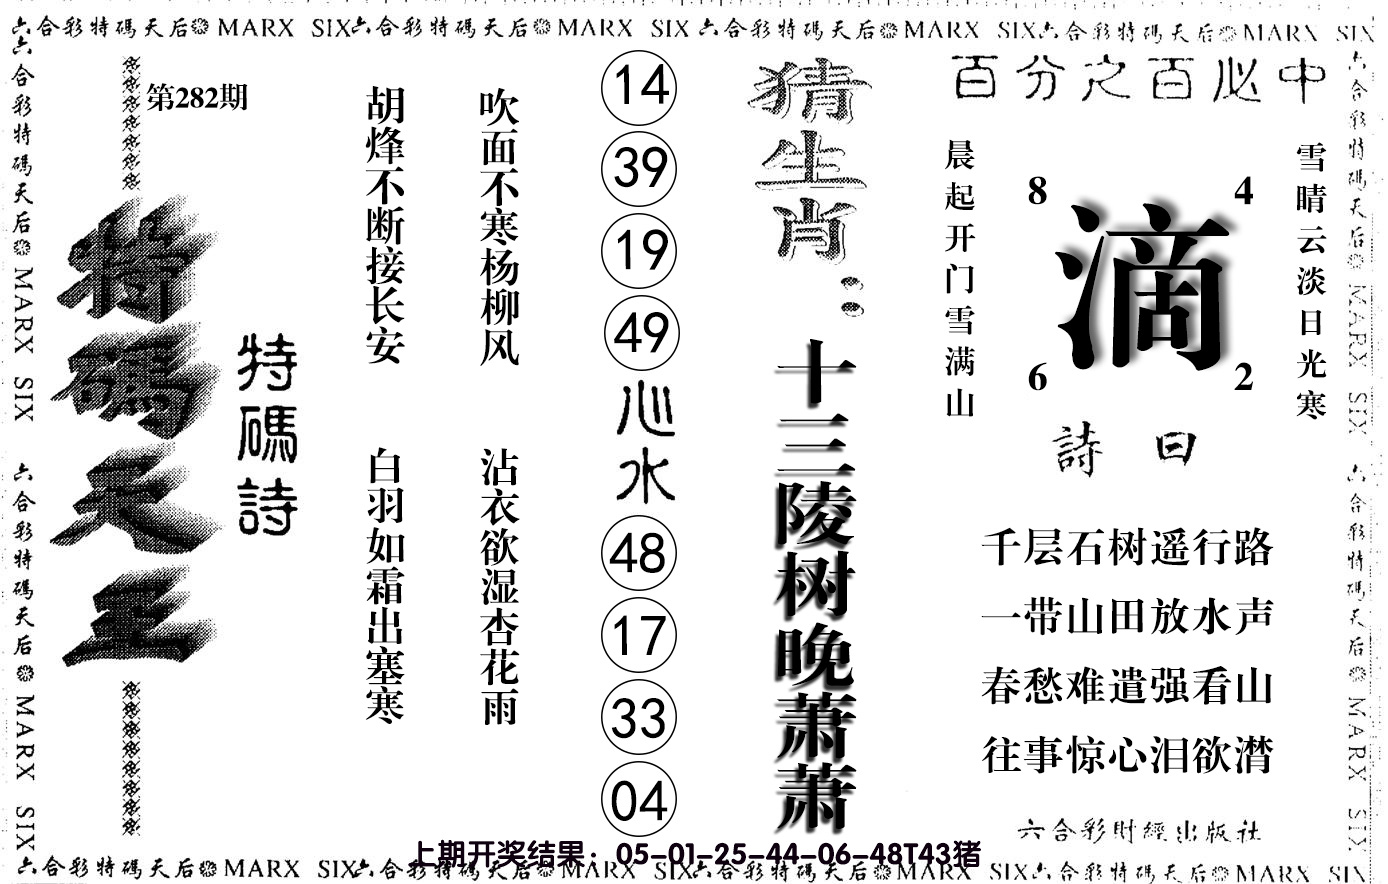 六合彩特碼天后❁MARX SIX六合彩特碼天后❁MARX SIX六合彩特碼天后❁MARX SIX六合彩特碼天后❁MARX SIX
六合彩特碼天后❁MARX SIX 六合彩特碼天后❁MARX SIX
第282期
特碼天王
特碼詩
胡烽不断接长安 白羽如霜出塞寒
吹面不寒杨柳风 沾衣欲湿杏花雨
14
39
19
49
心水
48
17
33
04
猜生肖：十三陵树晚萧萧
百分之百必中
晨起开门雪满山
8 4
滴
6 2
雪晴云淡日光寒
詩曰
千层石树遥行路
一带山田放水声
春愁难遣强看山
往事惊心泪欲潸
六合彩財經出版社
六合彩特碼天后❁MARX SIX 六合彩特碼天后❁MARX SIX
上期开奖结果：05-01-25-44-06-48T43猪
六合彩特碼天后❁MARX SIX六合彩特碼天后❁MARX SIX六合彩特碼天后❁MARX SIX六合彩特碼天后❁MARX SIX